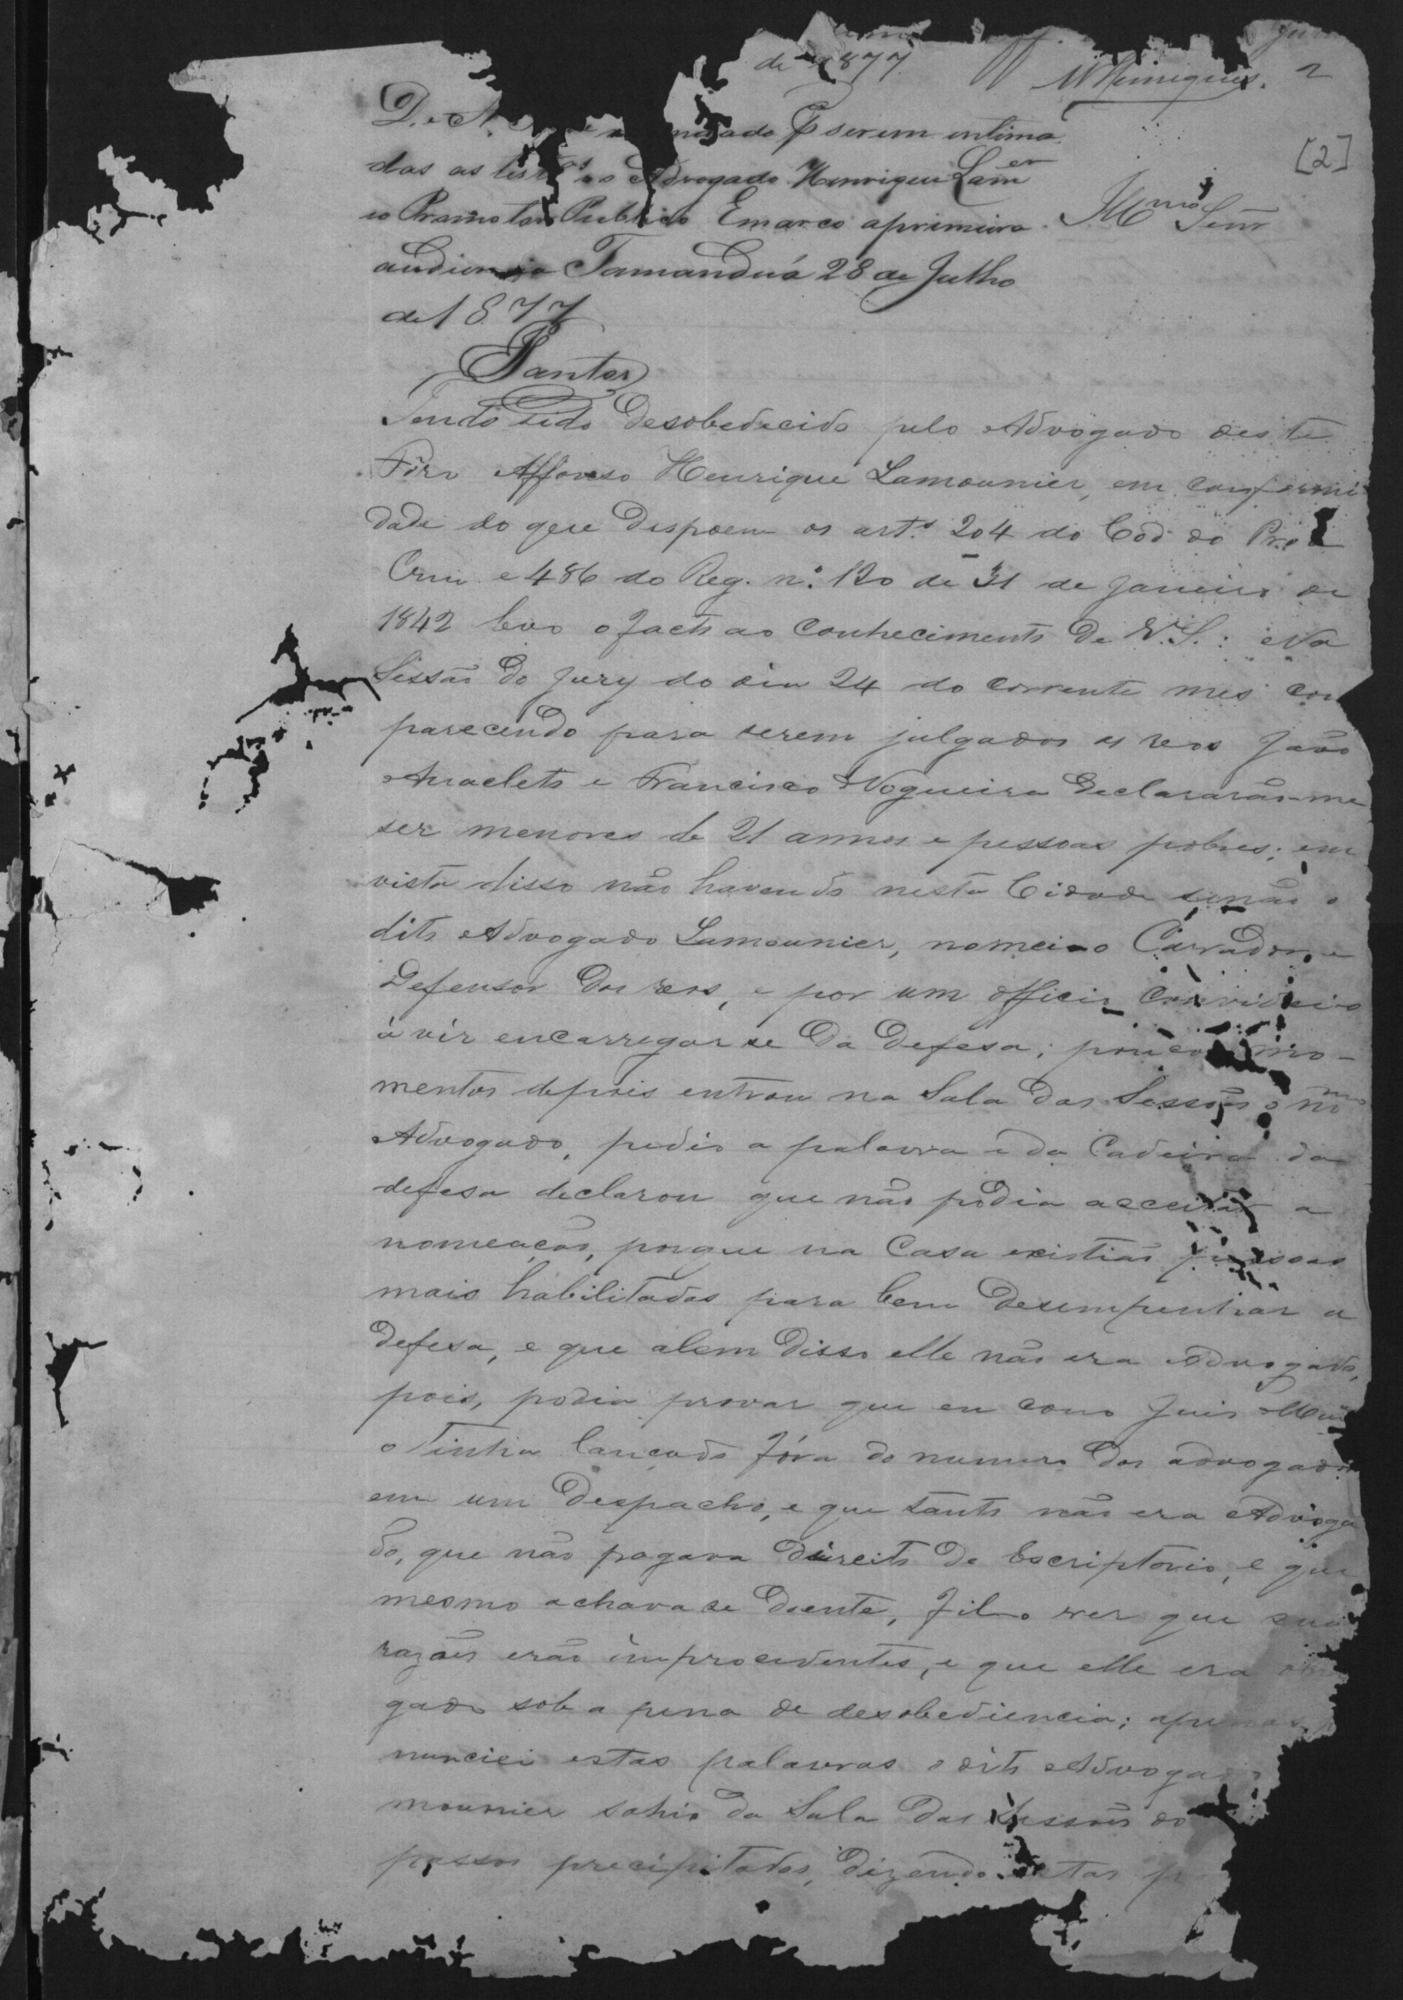 de 1877
2
[2]
D. e A. mandado serem intima
das as testas o Advogado Henrique Lamer
eo Promotor Publico Emarco aprimeira
Illmo Senr
audiencia Tamanduá 28 de Julho
de 1877
Santos
Tendo sido desobedecido pelo Advogado deste
Fôro Affonso Henrique Lamounier, em conformi
dade do que dispoem os arts 204 do Cod do Proc
Crim e 486 do Reg. nº 120 de 31 de Janeiro de
1842 levo o facto ao conhecimento de V.S.: Na
Sessão do Jury do dia 24 do corrente mes com
parecendo para serem julgados os reos João
Anacleto e Francisco Nogueira declararão-me
ser menores de 21 annos e pessoas pobres; em
vista disso não havendo nesta Cidade senão o
dito Advogado Lamounier, nomeio-o Curador e
Defensor dos reos, e por um officio convidei-o
á vir encarregar se da defesa; poucos mo-
mentos depois entrou na Sala das Sessões o mmo
Advogado, pedio a palavra e da Cadeira da
defesa declarou que não podia acceitar a
nomeação, porque na Casa existião pessoas
mais habilitadas para bem desempenhar a
defesa, e que alem disso elle não era advogado,
pois, podia provar que eu como Juis Mun
o tinha lançado fóra do numero dos advogados
em um despacho, e que tanto não era Advoga
do, que não pagava direito de Escriptorio, e que
mesmo achava se doente, fil-o ver que suas
razões erão improcedentes, e que elle era obri
gado sob a pena de desobediencia; apenas
nunciei estas palavras o dito Advogado
mounier sahio da Sala das Sessões do
passos precipitados, dizendo estas p